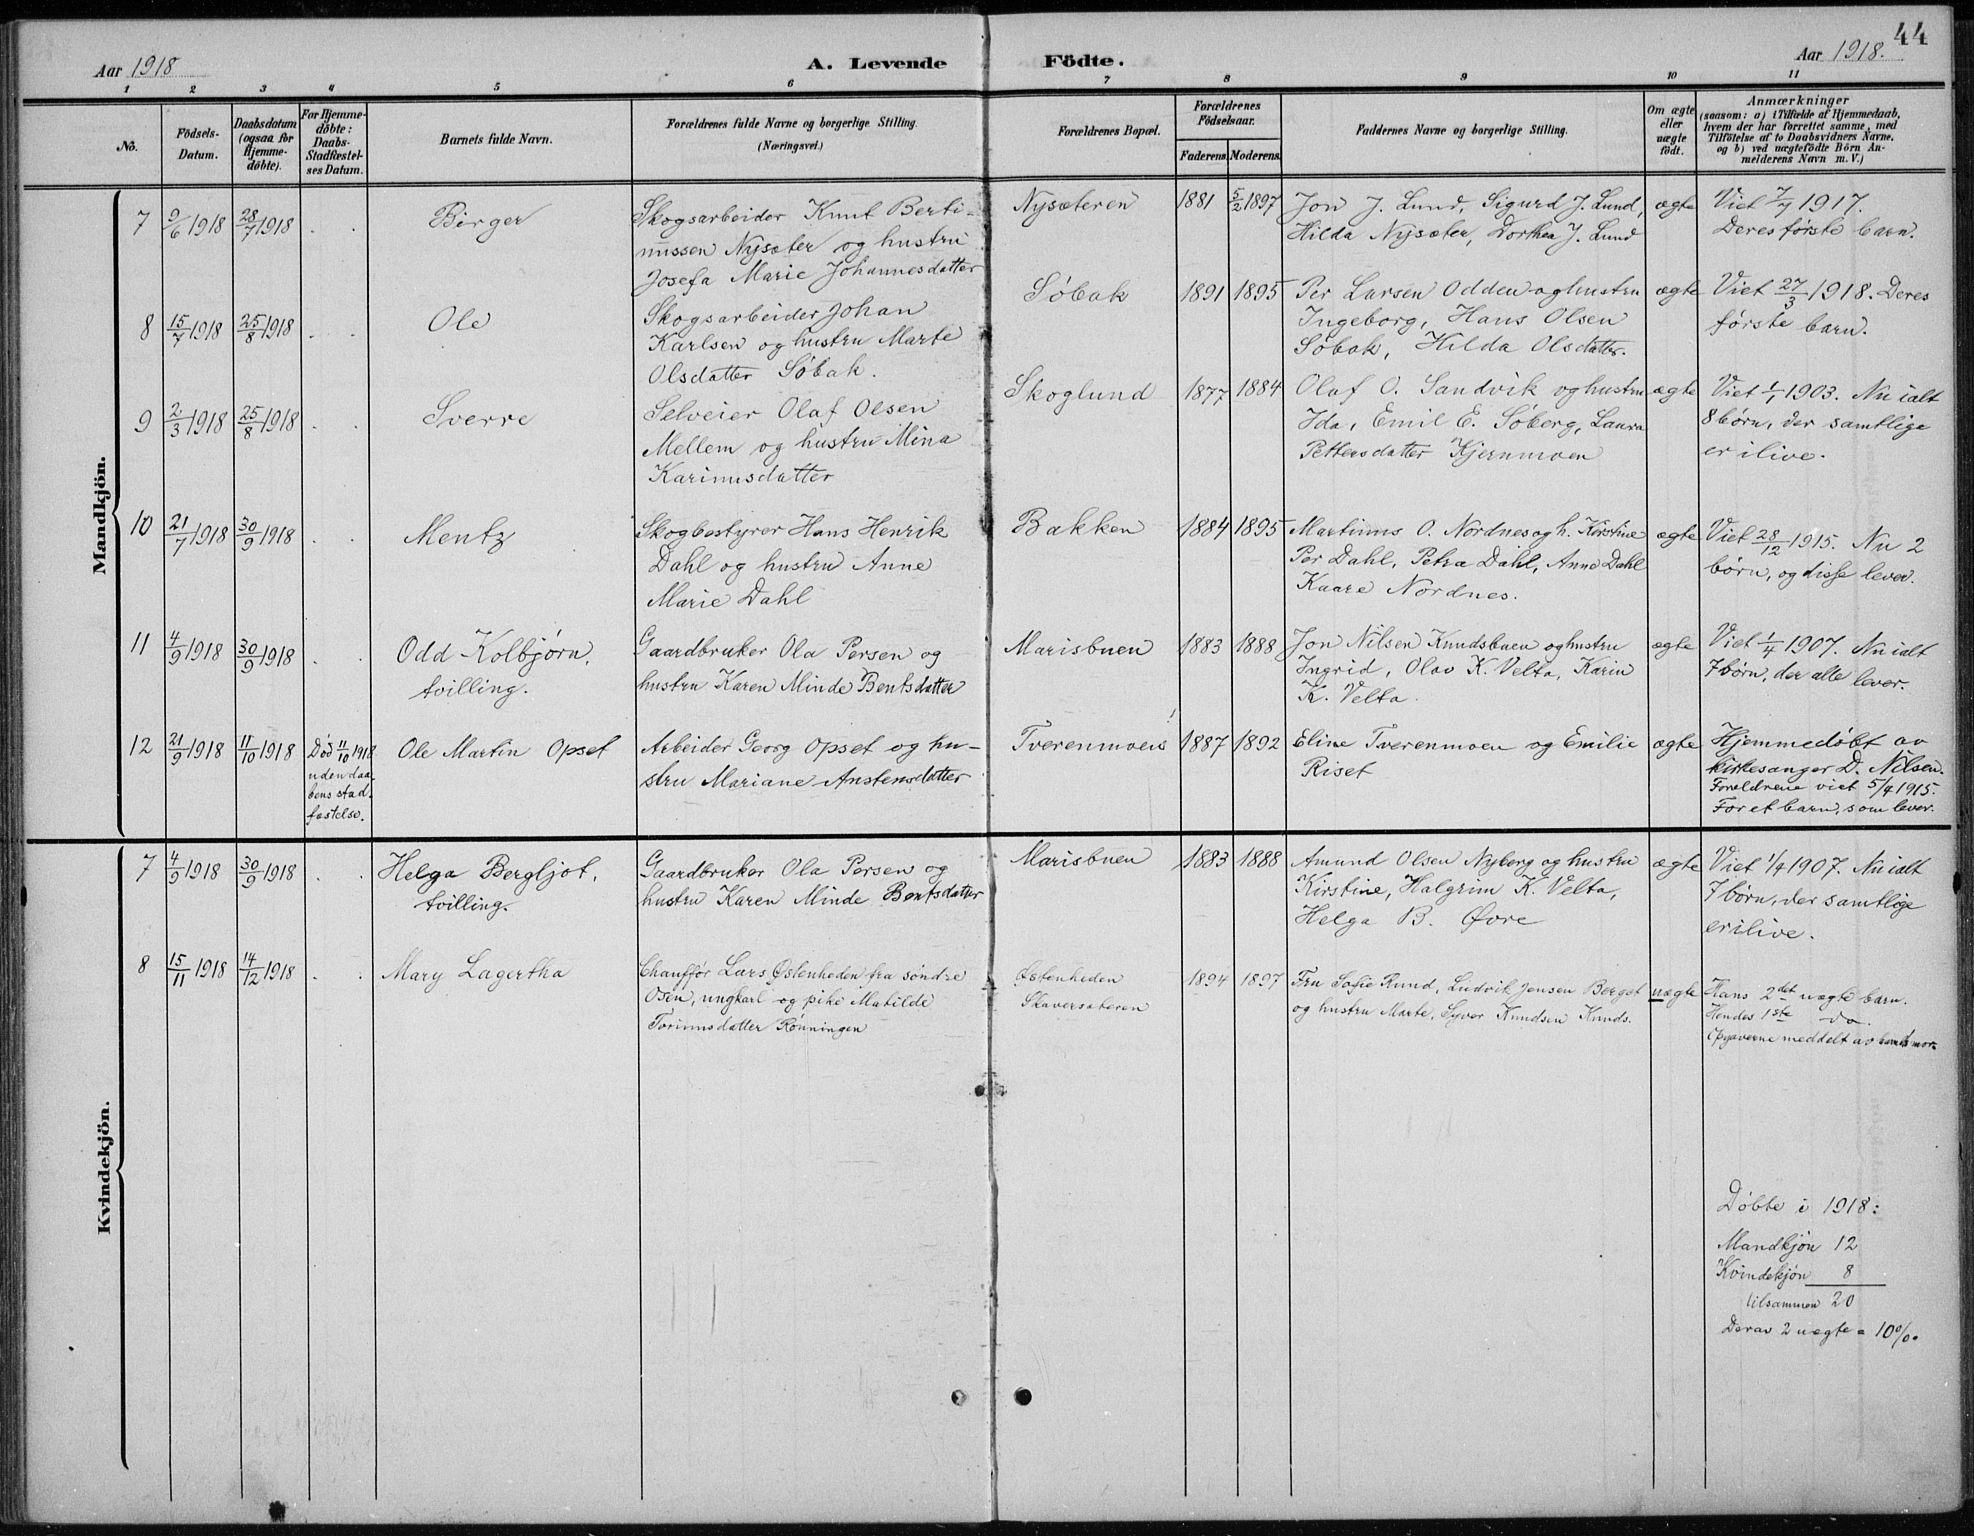 44
Aar 1918
A. Levende Födte.
Aar 1918.
1 2 3 4 5 6 7 8 9 10 11
No.
Födsels-
Datum.
Daabsdatum
(ogsaa for
Hjemme-
döbte).
For Hjemme-
döbte:
Daabs-
Stadfæstel-
ses Datum.
Barnets fulde Navn.
Forældrenes fulde Navne og borgerlige Stilling.
(Næringsvei.)
Forældrenes Bopæl.
Forældrenes
Födselsaar.
Faderens. Moderens.
Faddernes Navne og borgerlige Stilling.
Om ægte
eller
uægte
födt.
Anmærkninger
(saasom: a) i Tilfælde af Hjemmedaab,
hvem der har forrettet samme, med
Tilföielse af to Daabsvidners Navne,
og b) ved uægtefödte Börn An-
melderens Navn m. V.)
Mandkjön.
7 9/6 1918 28/7 1918 . . Birger
Skogsarbeider Knut Berti-
nussen Nysæter og hustru
Josefa Marie Johannesdatter
Nysæteren 1881 5/2 1897
Jon J. Lund, Sigurd J. Lund,
Hilda Nysæter, Dorthea J. Lund
ægte
Viet 7/7 1917.
Deres første barn.
8 15/7 1918 25/8 1918 . . Ole
Skogsarbeider Johan
Karlsen og hustru Marte
Olsdatter Søbak.
Søbak 1891 1895
Per Larsen Odden og hustru
Ingeborg, Hans Olsen
Søbak, Hilda Olsdatter.
ægte
Viet 27/3 1918. Deres
første barn.
9 2/3 1918 25/8 1918 . . Sverre
Selveier Olaf Olsen
Mellem og hustru Mina
Karinusdatter
Skoglund 1877 1884
Olaf O. Sandvik og hustru
Ida, Emil E. Søberg, Laura
Pettersdatter Kjernmoen
ægte
Viet 1/1 1903. Nu ialt
8 børn, der samtlige
er ilive.
10 21/7 1918 30/9 1918 . . Mentz
Skogbestyrer Hans Henrik
Dahl og hustru Anne
Marie Dahl
Bakken 1884 1895
Martinus O. Nordnes og h. Kirstine
Per Dahl, Petra Dahl, Anne Dahl
Kaare Nordnes.
ægte
Viet 28/12 1915. Nu 2
børn, og disse lever.
11 4/9 1918 30/9 1918 . . Odd Kolbjørn,
tvilling.
Gaardbruker Ola Persen og
hustru Karen Minde Bentsdatter
Marisbuen 1883 1888
Jon Nilsen Knudsbuen og hustru
Ingrid, Olav K. Velta, Karin
K. Velta
ægte
Viet 1/4 1907. Nu ialt
7 børn, der alle lever.
12 21/9 1918 11/10 1918
Død 11/10 1918
uden daa-
bens stad-
fæstelse.
Ole Martin Opset
Arbeider Georg Opset og hu-
stru Mariane Anstensdatter
Tverenmoens 1887 1892
Eline Tverenmoen og Emilie
Riset
ægte
Hjemmedøbt av
kirkesanger D. Nilsen.
Forældrene viet 5/4 1915.
For et barn, som lever.
Kvindekjön.
7 4/9 1918 30/9 1918 . . Helga Bergljot,
tvilling.
Gaardbruker Ola Persen og
hustru Karen Minde Bentsdatter
Marisbuen 1883 1888
Amund Olsen Nyberg og hustru
Kirstine, Halgrim K. Velta,
Helga B. Øvre
ægte
Viet 1/4 1907. Nu ialt
7 børn, der samtlige
er ilive.
8 15/11 1918 14/12 1918 . . Mary Lagertha
Chauffør Lars Østenheden fra søndre
Osen, ungkarl og pike Matilde
Torinusdatter Rønningen
Østenheden
Skaversæteren
1894 1897
Fru Sofie Rund, Ludvik Jensen Berget
og hustru Marte, Syver Knudsen Knuds.
uægte
Hans 2det uægte barn.
Hendes 1ste do.
Opgaverne meddelt av barnets mor.
Døbte i 1918:
Mandkjøn 12
Kvindekjøn 8
tilsammen 20
Derav 2 uægte = 10%.